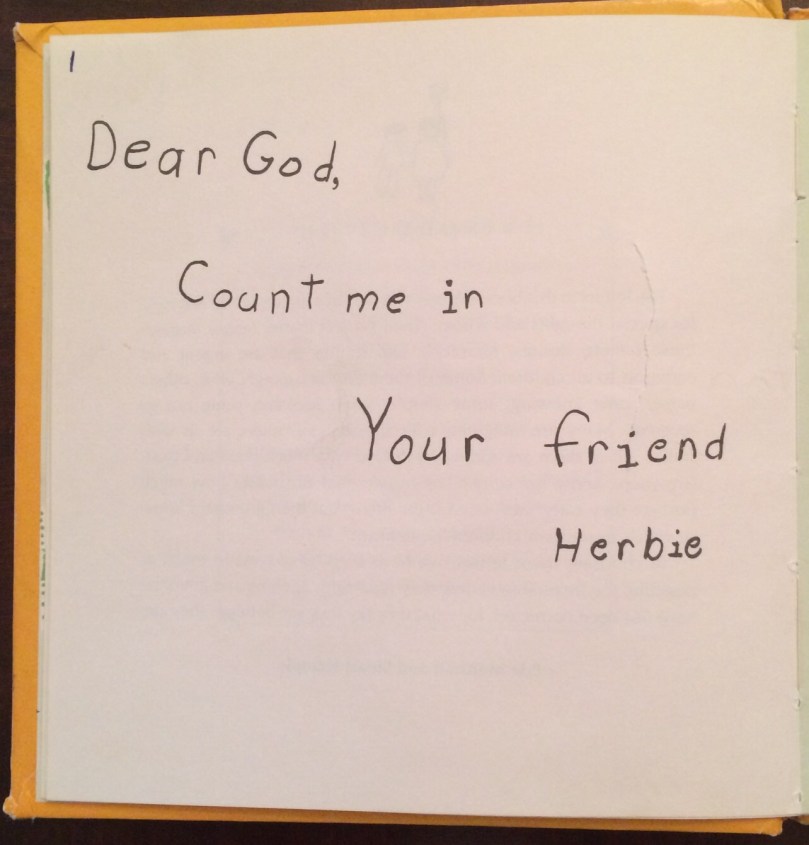 1
Dear God,
Count me in
Your friend
Herbie